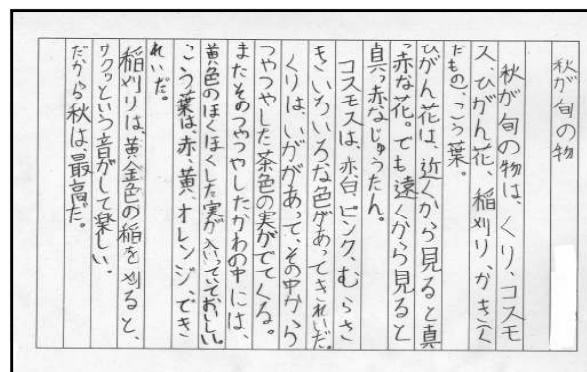 秋が旬の物
秋が旬の物は、くり、コスモ
ス、ひがん花、稲刈り、かきくだもの、こう葉。
ひがん花は、近くから見ると真
っ赤な花。でも遠くから見ると
真っ赤なじゅうたん。
コスモスは、赤、白、ピンク、むらさ
きいろいろな色があってきれいだ。
くりは、いががあって、その中から
つやつやした茶色の実がでてくる。
またそのつやつやしたかわの中には、
黄色のほくほくした実が入いていておいしい。
こう葉は、赤、黄、オレンジ、でき
れいだ。
稲刈りは、黄金色の稲を刈ると、
サクッという音がして楽しい。
だから秋は、最高だ。